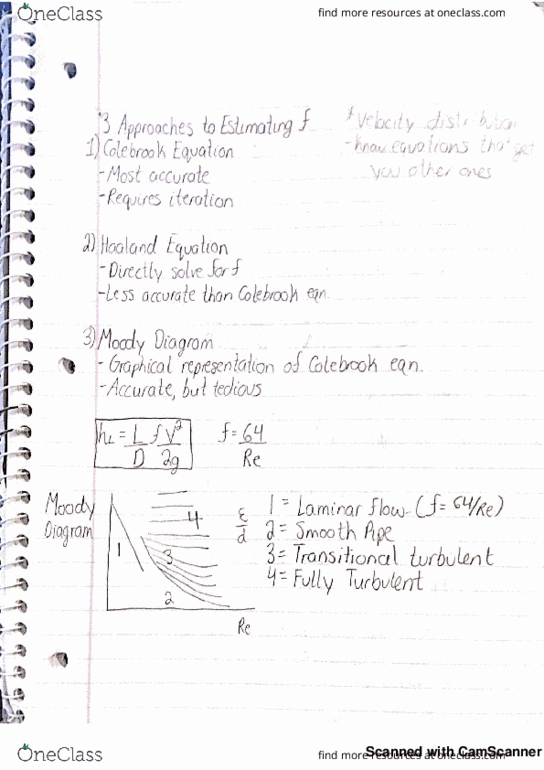 OneClass
find more resources at oneclass.com
3 Approaches to Estimating f
1) Colebrook Equation
-Most accurate
-Requires iteration
* Velocity distribution
-know equations that get
you other ones
2) Haaland Equation
-Directly solve for f
-Less accurate than Colebrook eqn.
3) Moody Diagram
- Graphical representation of Colebrook eqn.
-Accurate, but tedious
hL = L/D f V²/2g
f = 64/Re
Moody
Diagram
1
2
3
4
ε/d
Re
1 = Laminar flow (f = 64/Re)
2 = Smooth Pipe
3 = Transitional turbulent
4 = Fully Turbulent
OneClass
find more resources at oneclass.com
Scanned with CamScanner